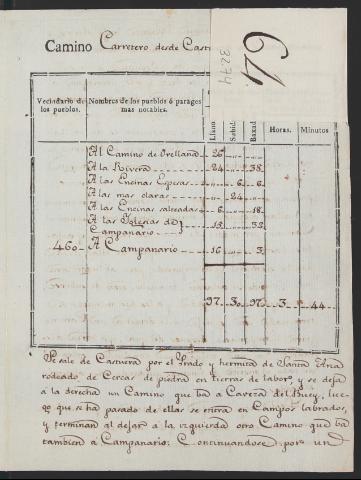 64
3274
Camino Carretero desde Castu
Vecindario de los pueblos. Nombres de los pueblos ó parages mas notables. Llano. Subid. Baxad. Horas. Minutos
Al Camino de Orellana 26
A la Rivera 24 38
A las Encinas Espesas 6 6
A las mas claras 24
A las Encinas salteadas 6 18
A las Yglesias de
Campanario 19 32
460 A Campanario 16 3
97 30 97 3 44
Se sale de Castuera por el Prado y hermita de Santa Ana
rodeado de Cercas de piedra en tierras de labor, y se deja
á la derecha un Camino que ba a Caveza del Buey, lue-
go que se ha pasado de ellas se entra en Campos labrados,
y terminan al dejar a la izquierda otro Camino que ba
tambien á Campanario: Continuandose por un